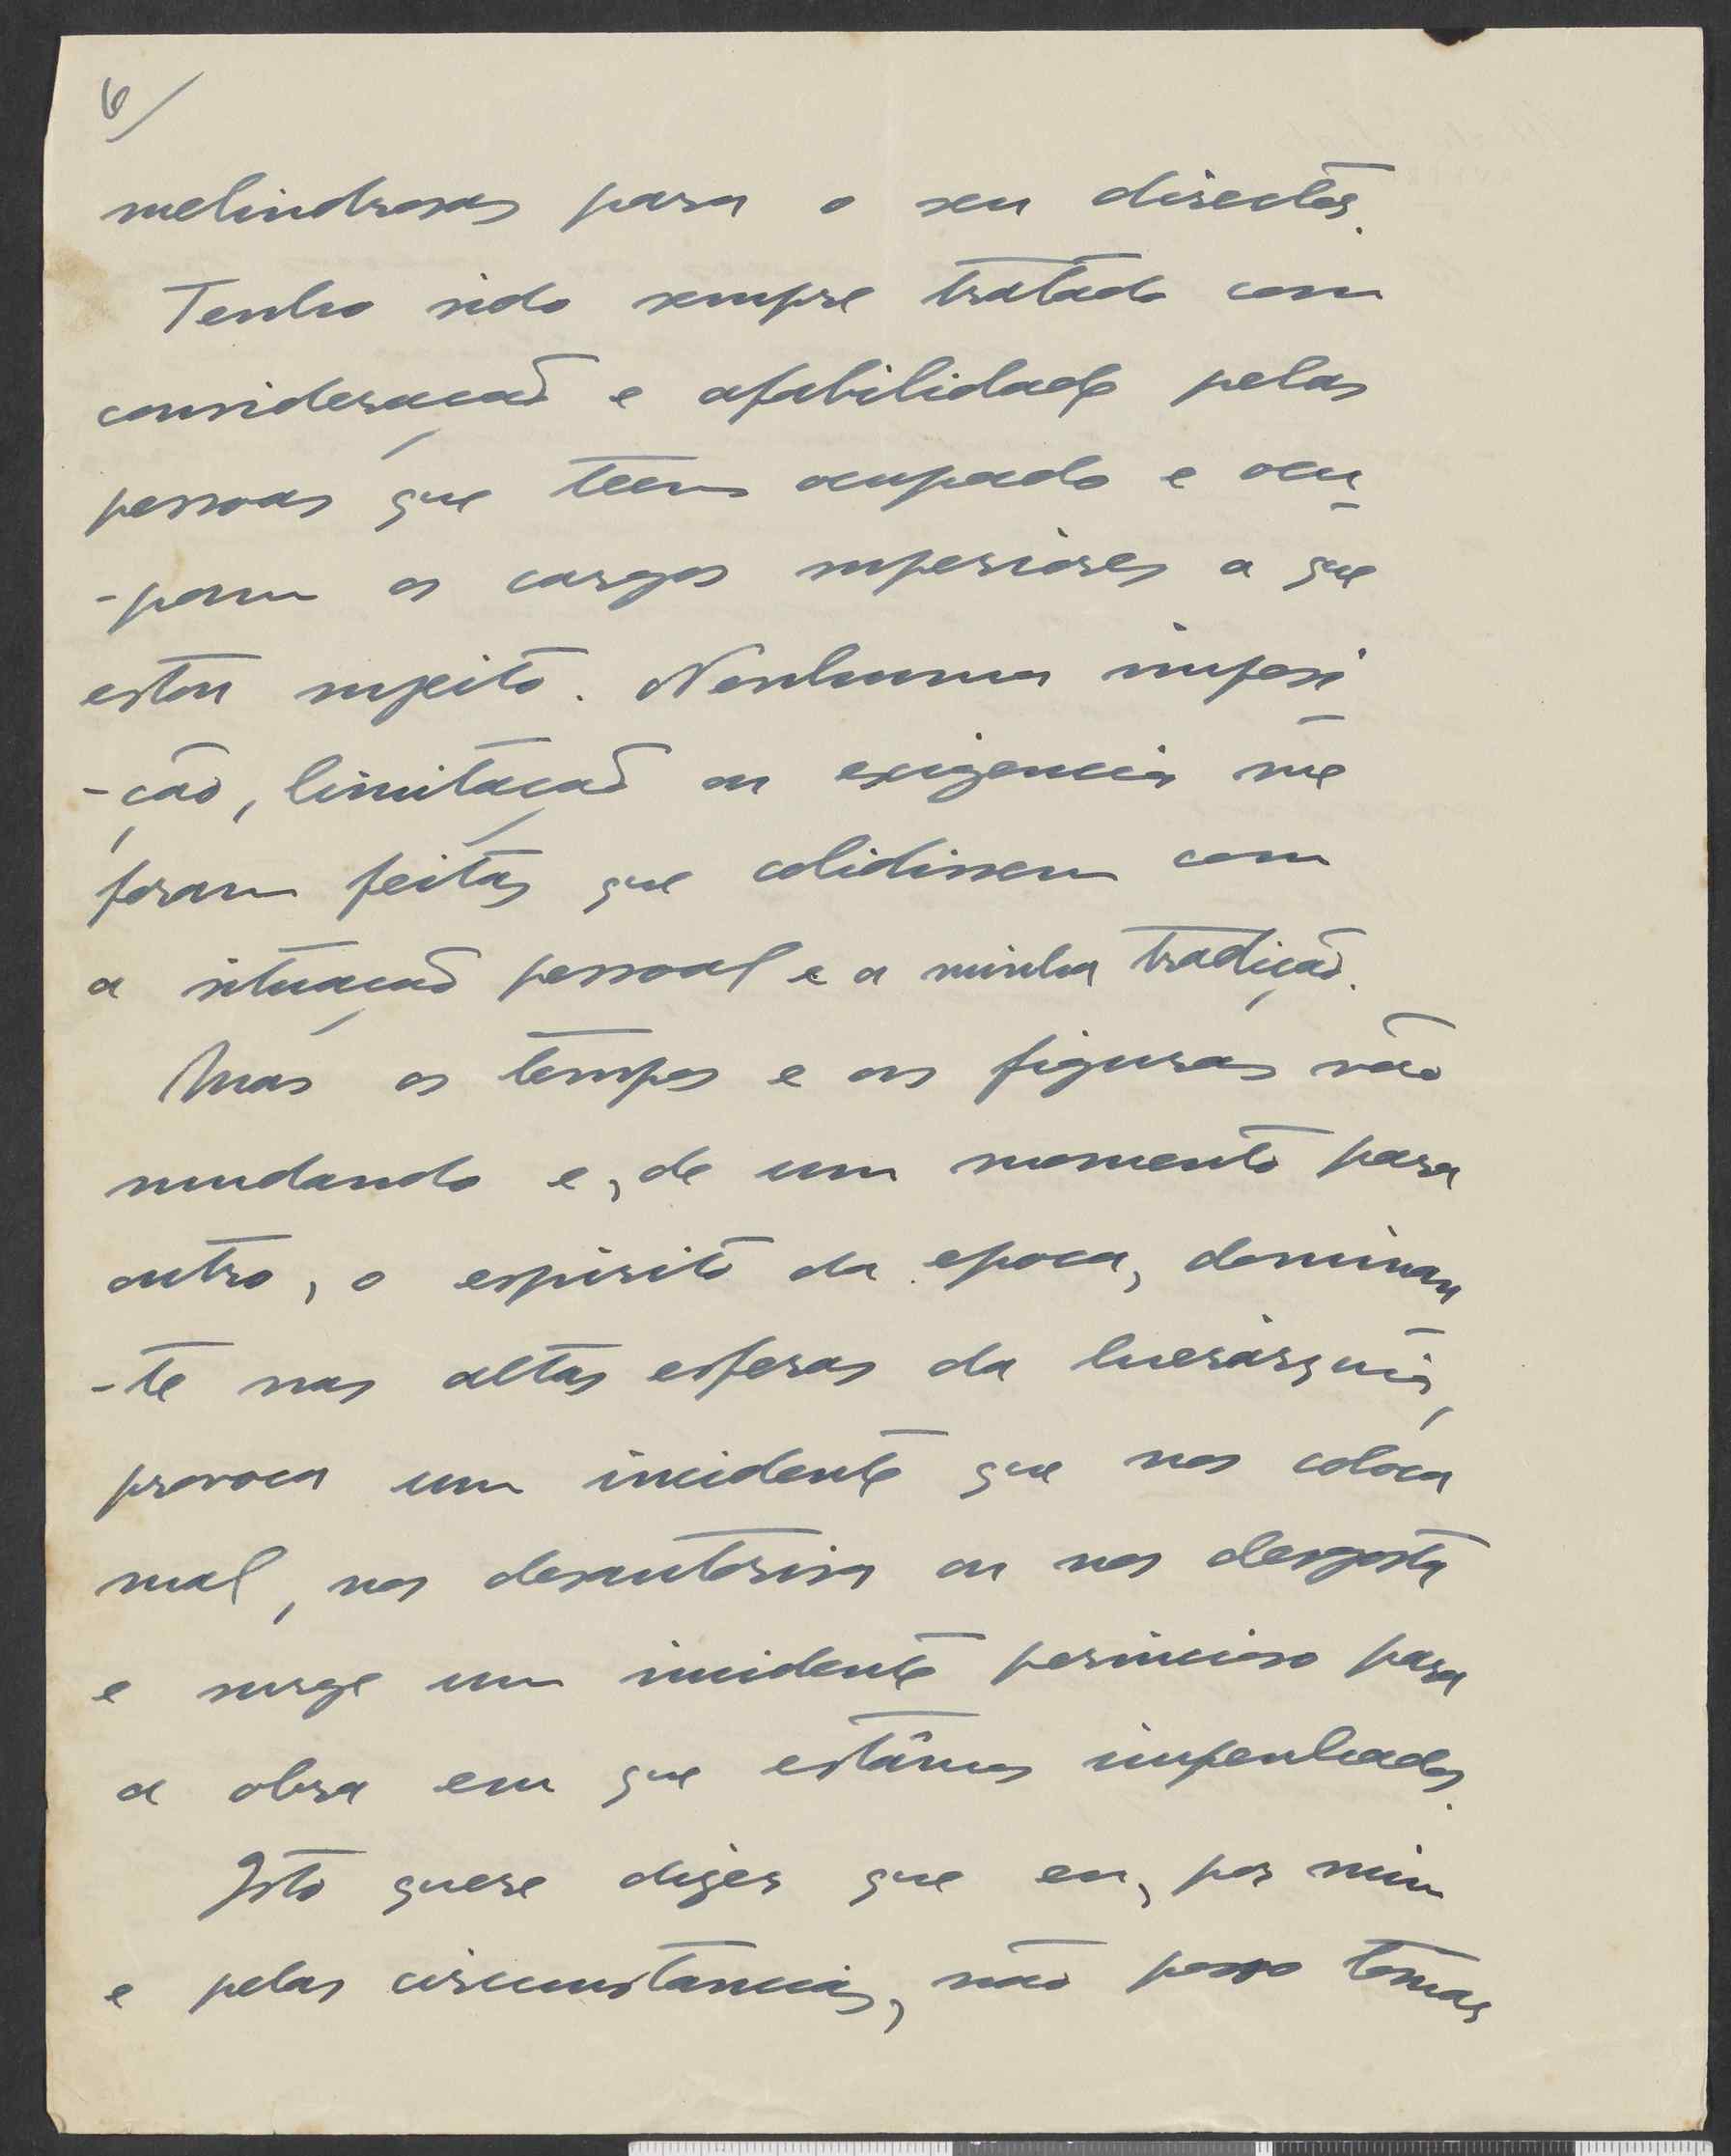 6/
melindrosas para o seu director.
Tenho sido sempre tratado com
consideração e afabilidade pelas
pessoas que teem ocupado e ocu-
-pam os cargos superiores a que
estou sujeito. Nenhuma imposi-
-ção, limitação ou exigencia me
foram feitas que colidissem com
a situação pessoal e a minha tradição.
Mas os tempos e as figuras vão
mudando e, de um momento para
outro, o espirito da epoca, dominan
-te nas altas esferas da hierárquia,
provoca um incidente que nos coloca
mal, nos desautorisa ou nos desgosta
e surge um incidente pernicioso para
a obra em que estâmos impenhados.
Isto quere dizer que eu, por mim
e pelas circumstancias, não posso tomar